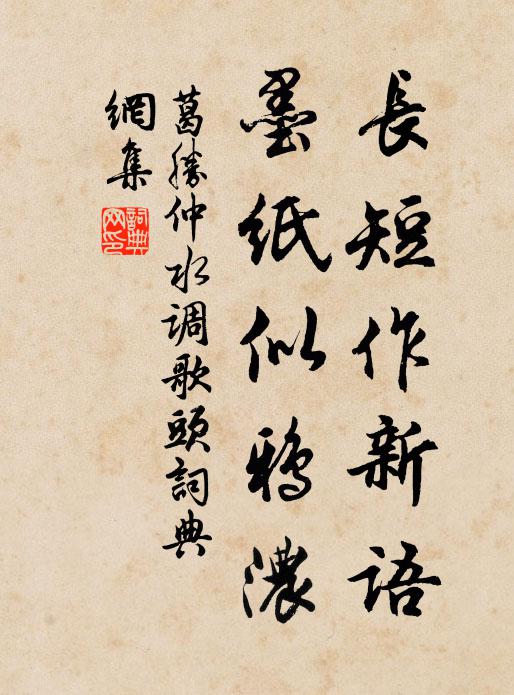 長短作新語
墨紙似鴉濃
葛勝仲水调歌頭詞典
網集
詞典
网印